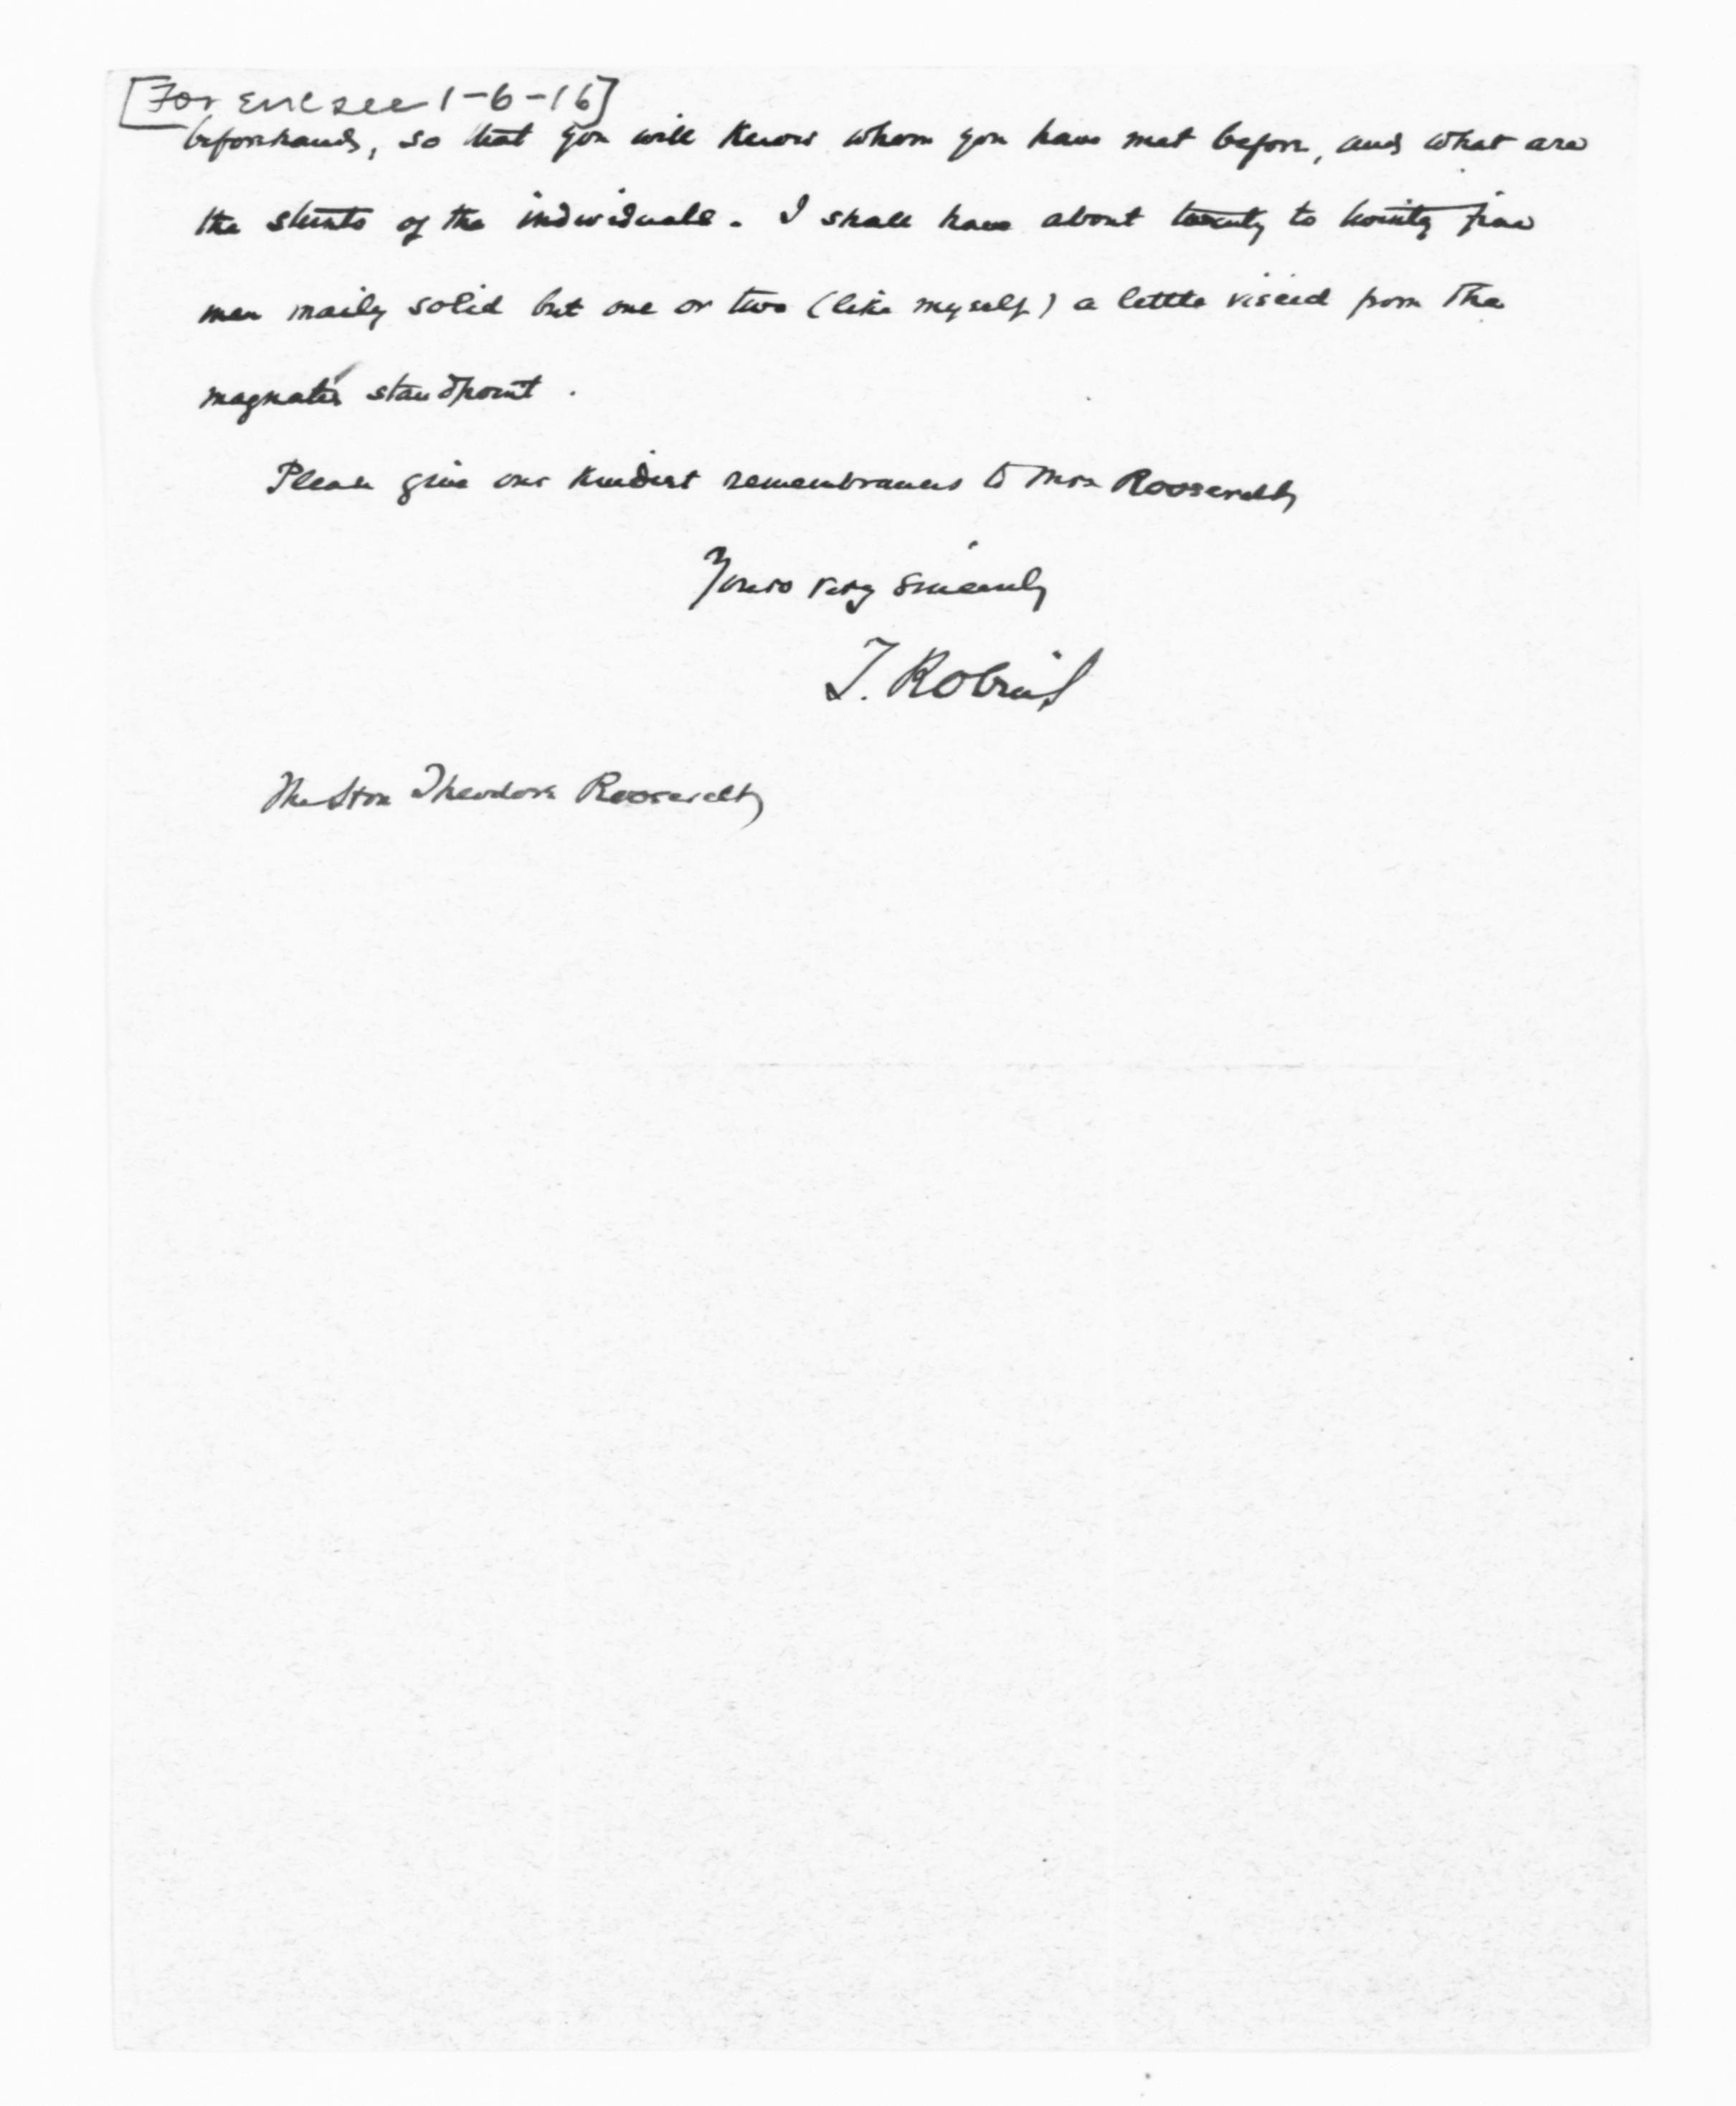 [For enc see 1-6-16]
beforehand, so that you will know whom you have met before, and what are
the stunts of the individuals. I shall have about twenty to twenty five
men maily solid but one or two (like myself) a little viscid from the
magnates' standpoint.
Please give our kindest remembrances to Mrs Roosevelt
Yours very sincerely
T. Robins
The Hon Theodore Roosevelt